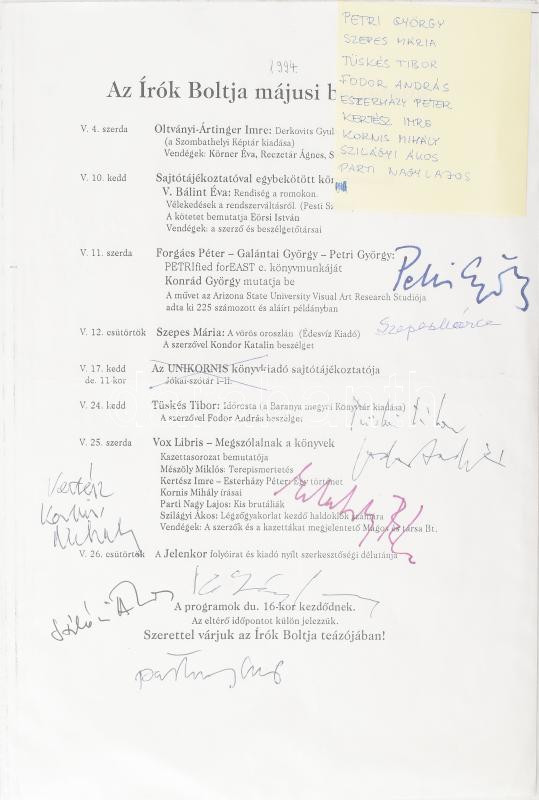 1994.
PETRI GYÖRGY
SZEPES MÁRIA
TÜSKÉS TIBOR
FODOR ANDRÁS
ESZERHÁZY PÉTER
KERTÉSZ IMRE
KORNIS MIHÁLY
SZILÁGYI ÁKOS
PARTI NAGY LAJOS
Az Írók Boltja májusi
V. 4. szerda Oltványi-Ártinger Imre: Derkovits Gyul
(a Szombathelyi Képtár kiadása)
Vendégek: Körner Éva, Reczetár Ágnes, S
V. 10. kedd Sajtótájékoztatóval egybekötött kön
V. Bálint Éva: Rendiség a romokon.
Vélekedések a rendszerváltásról. (Pesti Sz
A kötetet bemutatja Eörsi István
Vendégek: a szerző és beszélgetőtársai
V. 11. szerda Forgács Péter – Galántai György – Petri György:
PETRIfied forEAST c. könyvmunkáját
Konrád György mutatja be
A művet az Arizona State University Visual Art Research Studiója
adta ki 225 számozott és aláírt példányban
Petri György
Szepes Mária
V. 12. csütörtök Szepes Mária: A vörös oroszlán (Édesvíz Kiadó)
A szerzővel Kondor Katalin beszélget
V. 17. kedd Az UNIKORNIS könyvkiadó sajtótájékoztatója
de. 11-kor Jókai-szótár I–II.
V. 24. kedd Tüskés Tibor: Időrosta (a Baranya megyei Könyvtár kiadása)
A szerzővel Fodor András beszélget
Tüskés Tibor
Fodor András
V. 25. szerda Vox Libris – Megszólalnak a könyvek
Kazettasorozat bemutatója
Mészöly Miklós: Terepismertetés
Kertész Imre – Esterházy Péter: Egy történet
Kornis Mihály írásai
Parti Nagy Lajos: Kis brutáliák
Szilágyi Ákos: Légzőgyakorlat kezdő haldoklók számára
Vendégek: A szerzők és a kazettákat megjelentető Magos és társa Bt.
Kertész
Kornis
Mihály
V. 26. csütörtök A Jelenkor folyóirat és kiadó nyílt szerkesztőségi délutánja
Szilágyi Ákos
A programok du. 16-kor kezdődnek.
Az eltérő időpontot külön jelezzük.
Szerettel várjuk az Írók Boltja teázójában!